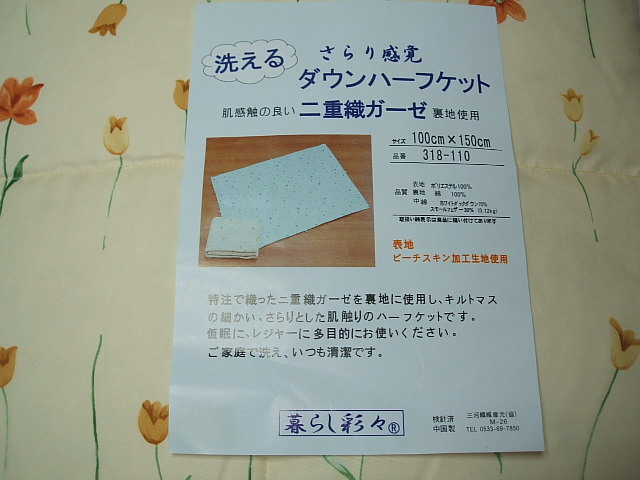 洗える
さらり感覚
ダウンハーフケット
肌感触の良い 二重織ガーゼ 裏地使用
サイズ 100cm×150cm
品番 318-110
表地 ポリエステル100%
品質 裏地 綿 100%
中綿 ホワイトダックダウン70%
スモールフェザー30% (0.12kg)
取扱い絵表示は商品に縫い付けてあります
表地
ピーチスキン加工生地使用
特注で織った二重織ガーゼを裏地に使用し、キルトマス
の細かい、さらりとした肌触りのハーフケットです。
仮眠に、レジャーに多目的にお使いください。
ご家庭で洗え、いつも清潔です。
暮らし彩々®
検針済
中国製
三河織維産元(協)
M-26
TEL 0533-69-7850